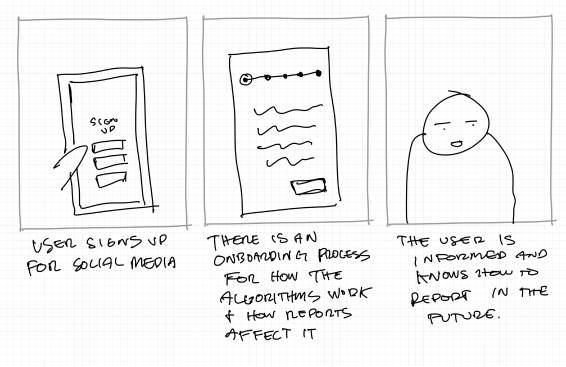 SIGN
UP
USER SIGNS UP
FOR SOCIAL MEDIA
THERE IS AN
ONBOARDING PROCESS
FOR HOW THE
ALGORITHMS WORK
& HOW REPORTS
AFFECT IT
THE USER IS
INFORMED AND
KNOWS HOW TO
REPORT IN THE
FUTURE.